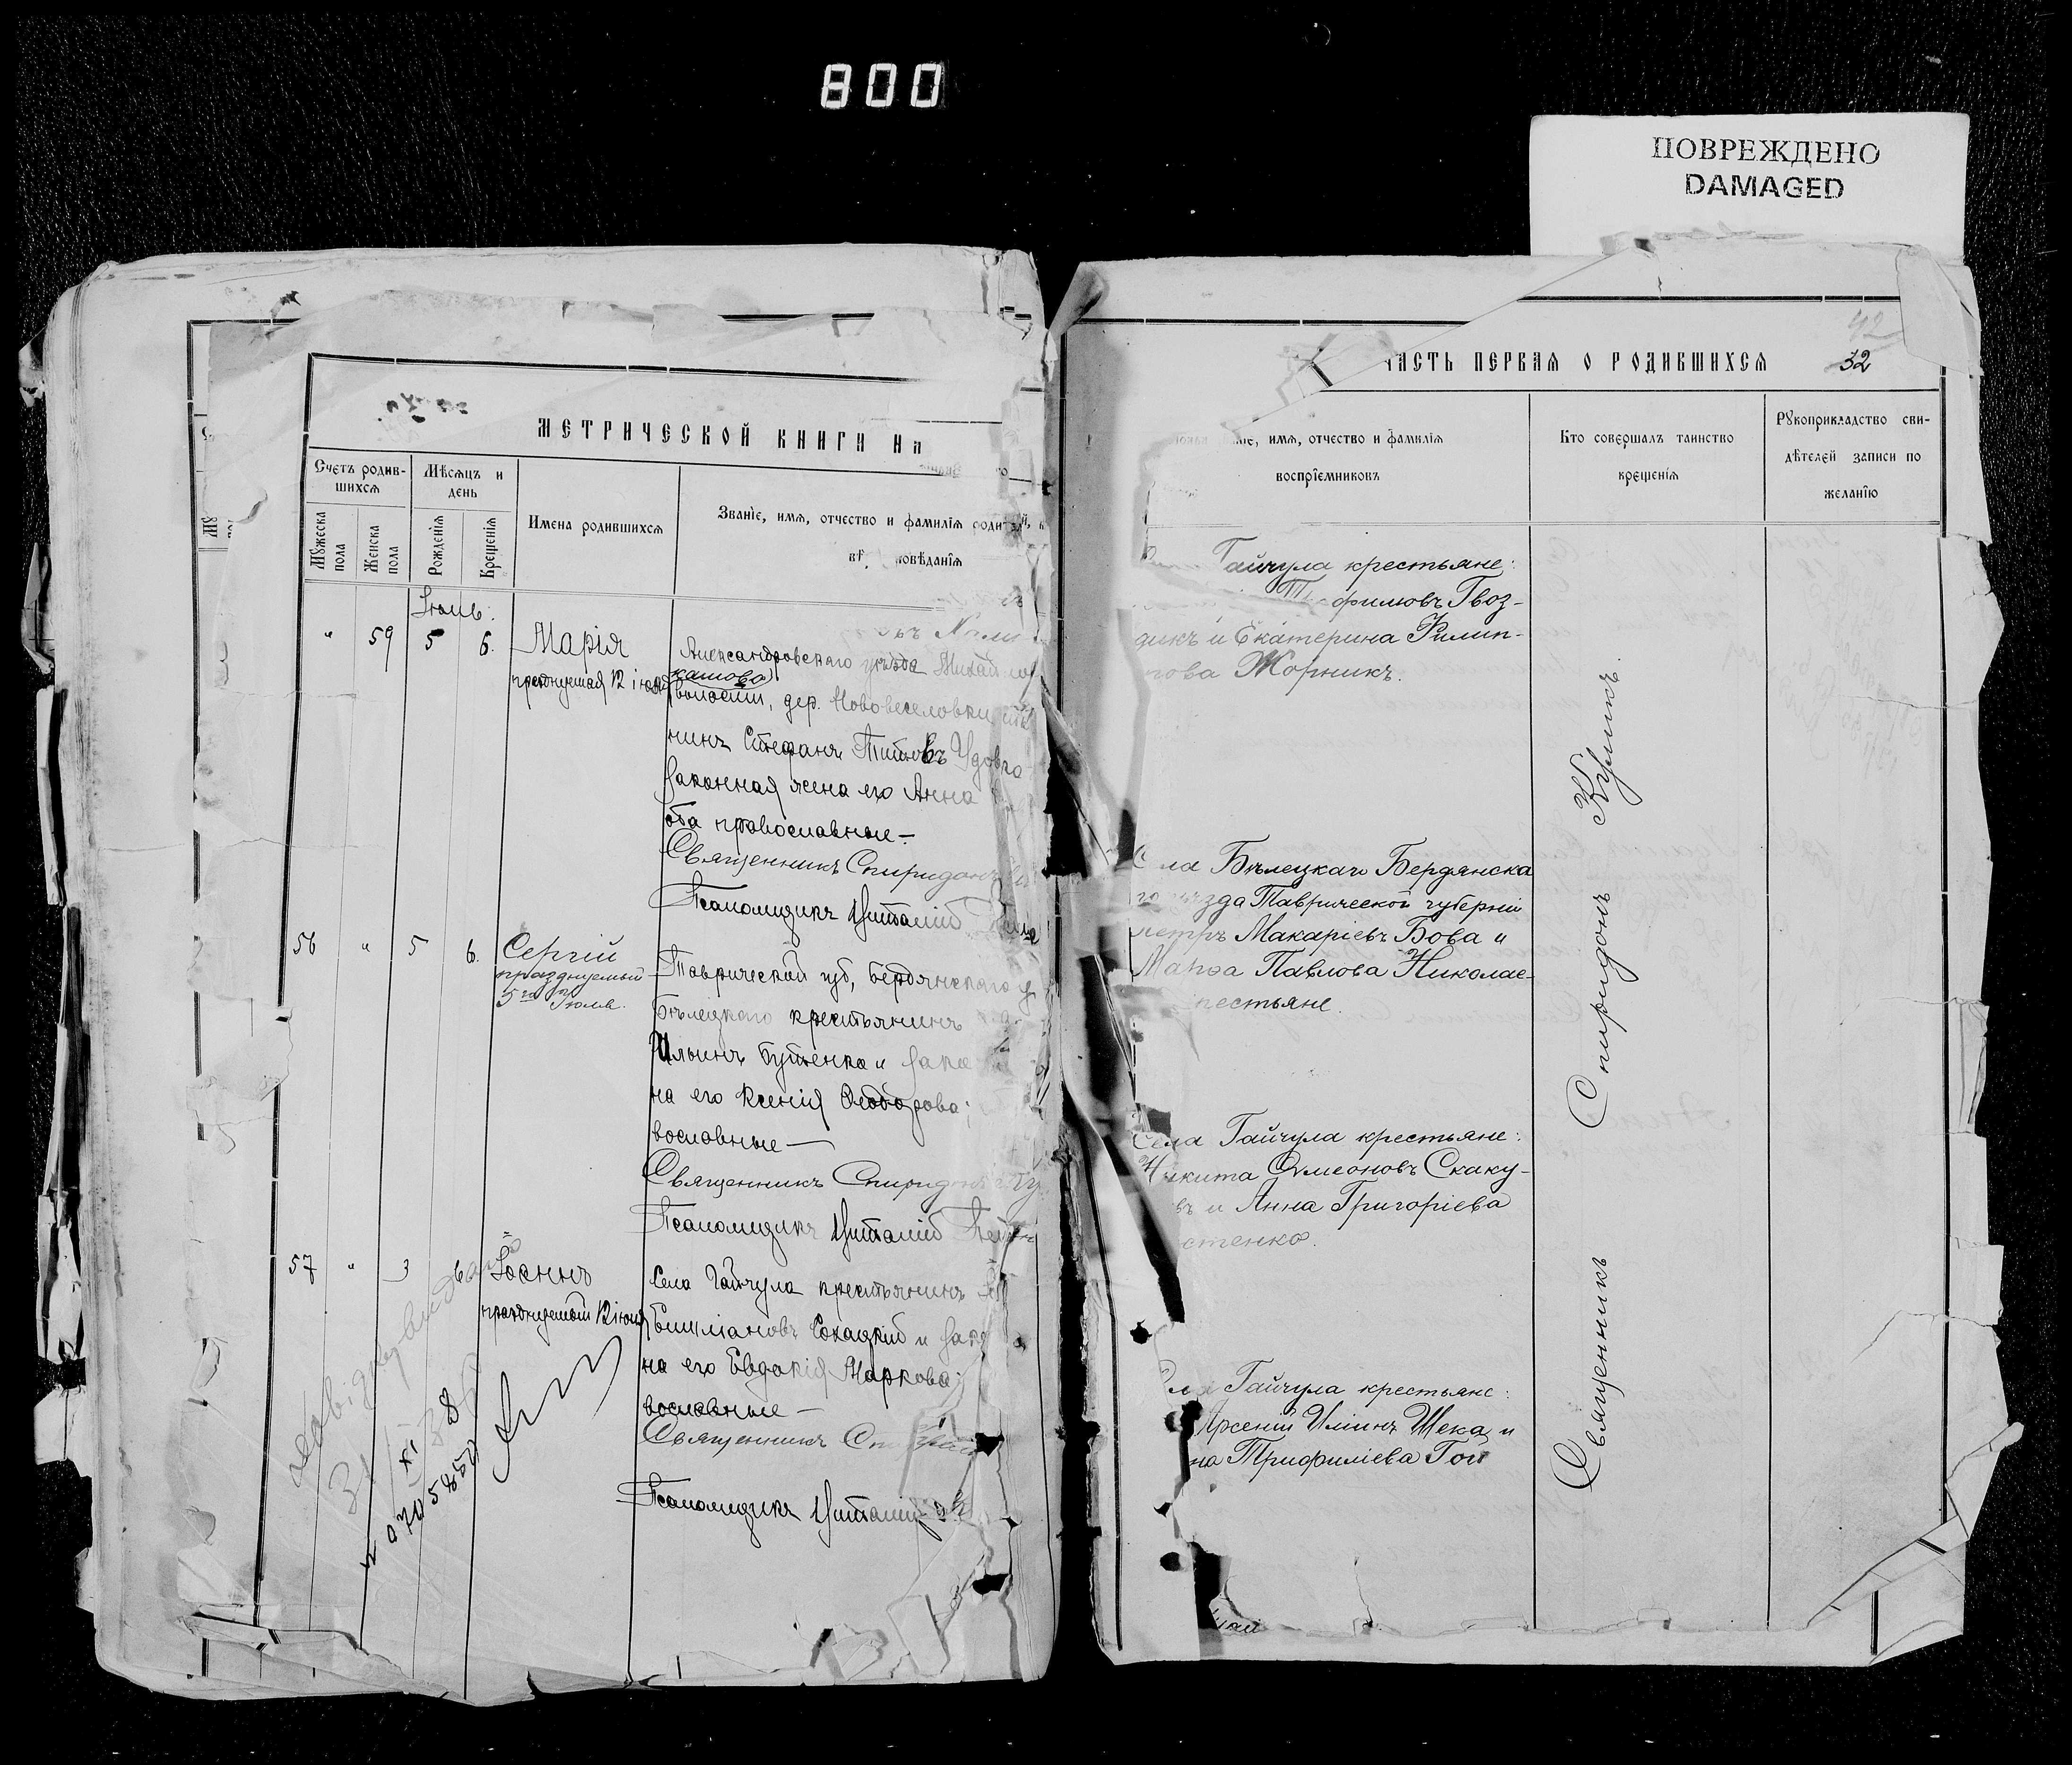 800
ПОВРЕЖДЕНО
DAMAGED
МЕТРИЧЕСКОЙ КНИГИ НА
Счетъ родив-
шихся
Мѣсяцъ и
день
Мужеска
пола
Женска
пола
Рожденія
Крещенія
Имена родившихся
Званіе, имя, отчество и фамилія
Іюль.
" 59 5 6. Марія
празднуемая 12 іюля
Александровскаго уѣзда Михай
волости, дер. Нововеселовки
нинъ Стефанъ Титовъ Удов
законная жена его Анна
оба православные —
Священникъ Спиридонъ
Псаломщикъ Виталій
56 " 5 6. Сергій
празднуемый
5го Іюля.
Таврической губ, Бердянскаго у
Бѣлецкаго крестьянинъ
Ильинъ Бутенко и зако
на его Ксенія Ѳеодорова;
вославные —
Священникъ Спиридонъ Ку
Псаломщикъ Виталій
57 " 3 6 Іоаннъ
празднуемый 12 іюля
Села Гайчула крестьянинъ
Емиліановъ Сокацкій и зако
на его Евдокія Маркова;
вославные —
Священникъ Сп
Псаломщикъ Виталій
ЧАСТЬ ПЕРВАЯ О РОДИВШИХСЯ
42
32
имя, отчество и фамилія
воспріемниковъ
Кто совершалъ таинство
крещенія
Рукоприкладство сви-
дѣтелей записи по
желанію
Гайчула крестьяне:
фимовъ Гвоз-
дикъ и Екатерина Филип-
пова Жорникъ.
Села Бѣлецкаго Бердянска
го уѣзда Таврической губерніи
Петръ Макаріевъ Бова и
Марѳа Павлова Николае-
крестьяне.
Села Гайчула крестьяне:
Никита Симеоновъ Скаку-
въ и Анна Григоріева
стенко.
Села Гайчула крестьяне:
Арсеній Ильинъ Шека и
на Трифиліева Гои
Священникъ Спиридонъ Куликъ.